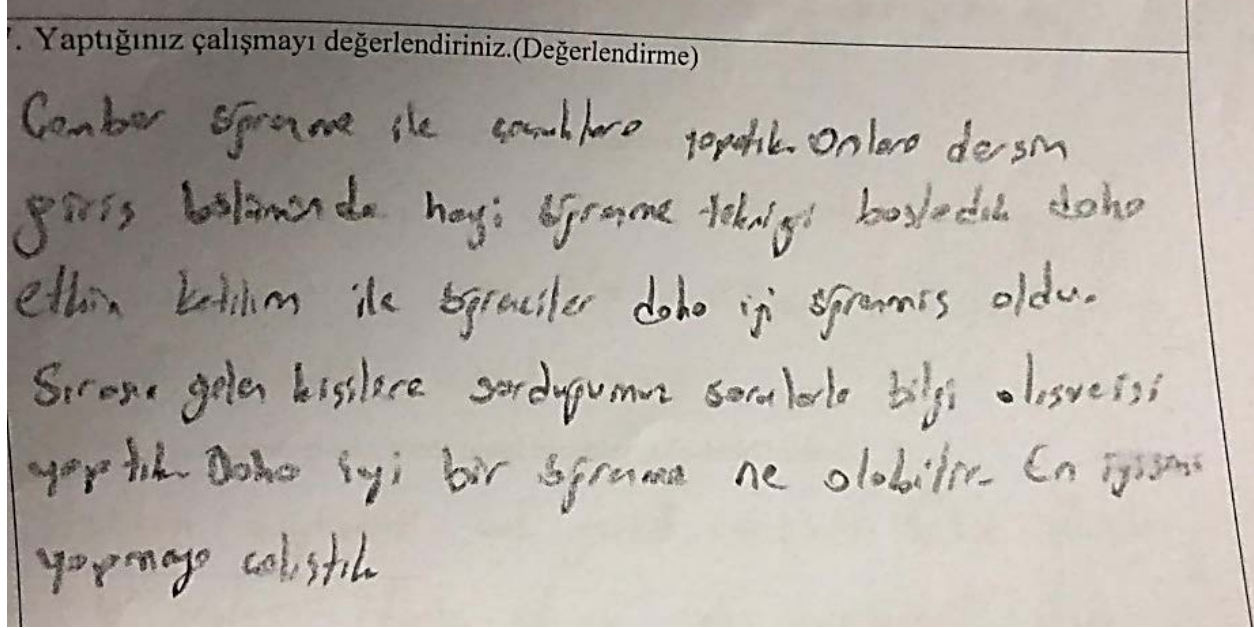 . Yaptığınız çalışmayı değerlendiriniz.(Değerlendirme)
Çember öğrenme ile çocuklara yapatık. Onlara dersin
giriş bölümünde hangi öğrenme tekniği başladık daha
etkin katılım ile öğrenciler daha iyi öğrenmiş oldu.
Sırası gelen kişilere sorduğumuz sorularla bilgi alışverişi
yaptık. Daha iyi bir öğrenme ne olabilir. En iyisini
yapmaya çalıştık